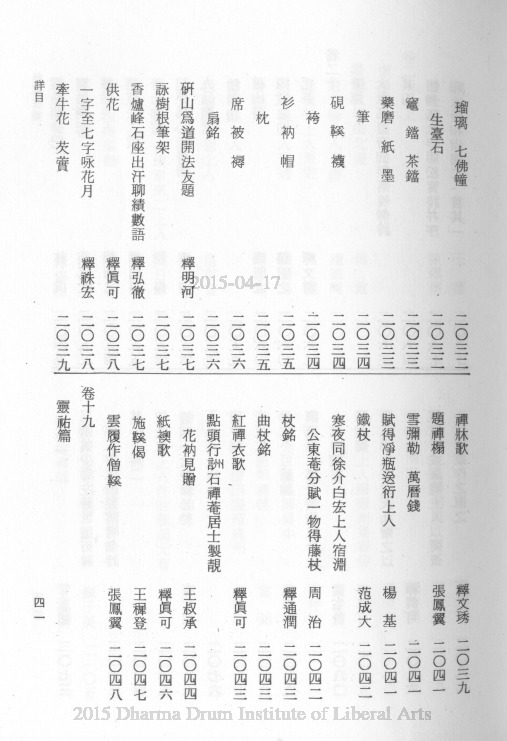 瑠璃 七佛幢 二〇三二
生臺石 二〇三二
竈 鐺 茶鐺 二〇三三
藥磨 紙 墨 二〇三三
筆 二〇三四
硯 鞵 襪 二〇三四
袴 二〇三四
衫 衲 帽 二〇三五
枕 二〇三五
席 被 褥 二〇三六
扇銘 二〇三六
硏山爲道開法友題 釋明河 二〇三七
詠樹根筆架 二〇三七
香爐峰石座出汗聊績數語 釋弘徹 二〇三七
供花 釋眞可 二〇三八
一字至七字咏花月 釋祩宏 二〇三八
牽牛花 芡蕒 二〇三九
詳目
禪牀歌 釋文琇 二〇三九
題禪榻 張鳳翼 二〇四一
雪彌勒 萬曆錢 二〇四一
賦得凈瓶送衍上人 楊基 二〇四一
鐵杖 范成大 二〇四二
寒夜同徐介白宏上人宿淵
公東菴分賦一物得藤杖 周治 二〇四二
杖銘 釋通潤 二〇四三
曲杖銘 二〇四三
紅禪衣歌 釋眞可 二〇四三
點頭行訓石禪菴居士製靚
花衲見贈 王叔承 二〇四四
紙襖歌 釋眞可 二〇四六
施鞵偈 王穉登 二〇四七
雲履作僧鞵 張鳳翼 二〇四八
卷十九
靈祐篇
四一
2015-04-17
2015 Dharma Drum Institute of Liberal Arts